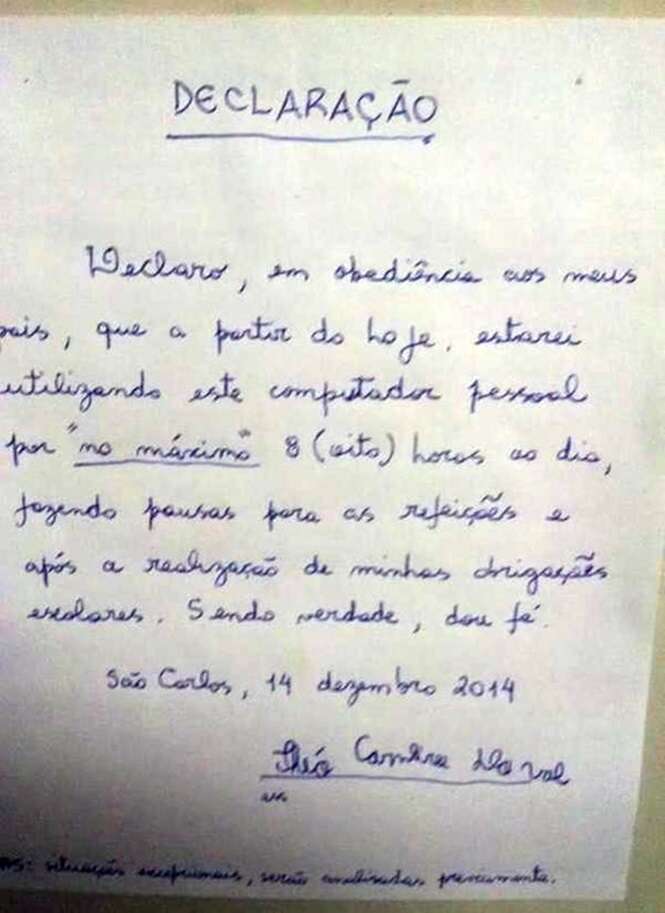 DECLARAÇÃO
Declaro, em obediência aos meus
pais, que a partir do hoje, estarei
utilizando este computador pessoal
por "no máximo" 8 (oito) horas ao dia,
fazendo pausas para as refeições e
após a realização de minhas obrigações
escolares. Sendo verdade, dou fé.
São Carlos, 14 dezembro 2014
Théo Do Val
OBS: situações excepcionais, serão analisadas previamente.